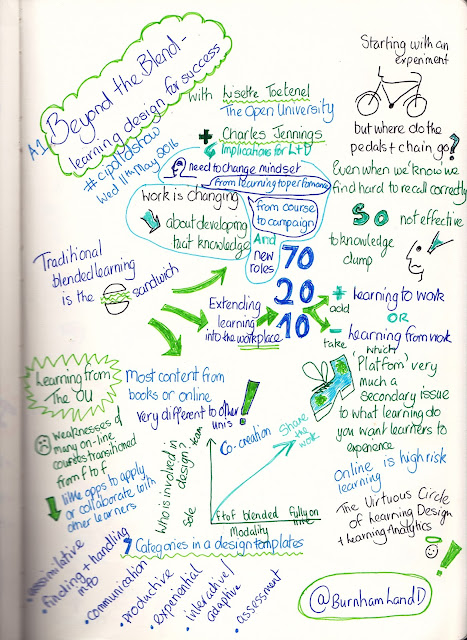 A1
Beyond the Blend -
learning design for success
#cipdldshow
Wed 11th May 2016
with Lisette Toetenel
The Open University
+ Charles Jennings
Implications for L+D
need to change mindset
from learning to performance
work is changing
from course
to campaign
about developing
that knowledge
And
new
roles
70
20
10
Starting with an
experiment
but where do the
pedals + chain go?
Even when we 'know' we
find hard to recall correctly
So not effective
to knowledge
dump
Traditional
blended learning
is the sandwich
Extending
learning
into the workplace
+ learning to work
add
OR
- learning from work
take
Learning from
The OU
Most content from
books or online
very different to other
unis!
weaknesses of
many on-line
courses transitioned
from f to f
little opps to apply
or collaborate with
other learners
which
'Platform' very
much a
secondary issue
to what learning do
you want learners to
experience
Online is high risk
learning
The Virtuous Circle
of Learning Design
+ Learning Analytics
Co-creation
Share
the
work
Who is involved in
design?
team
sole
f to f blended fully on
line
Modality
7 Categories in a design templates
• assimilative
• finding + handling
info
• communication
• productive
• experiential
• interactive/
adaptive
• assessment
@BurnhamLandD